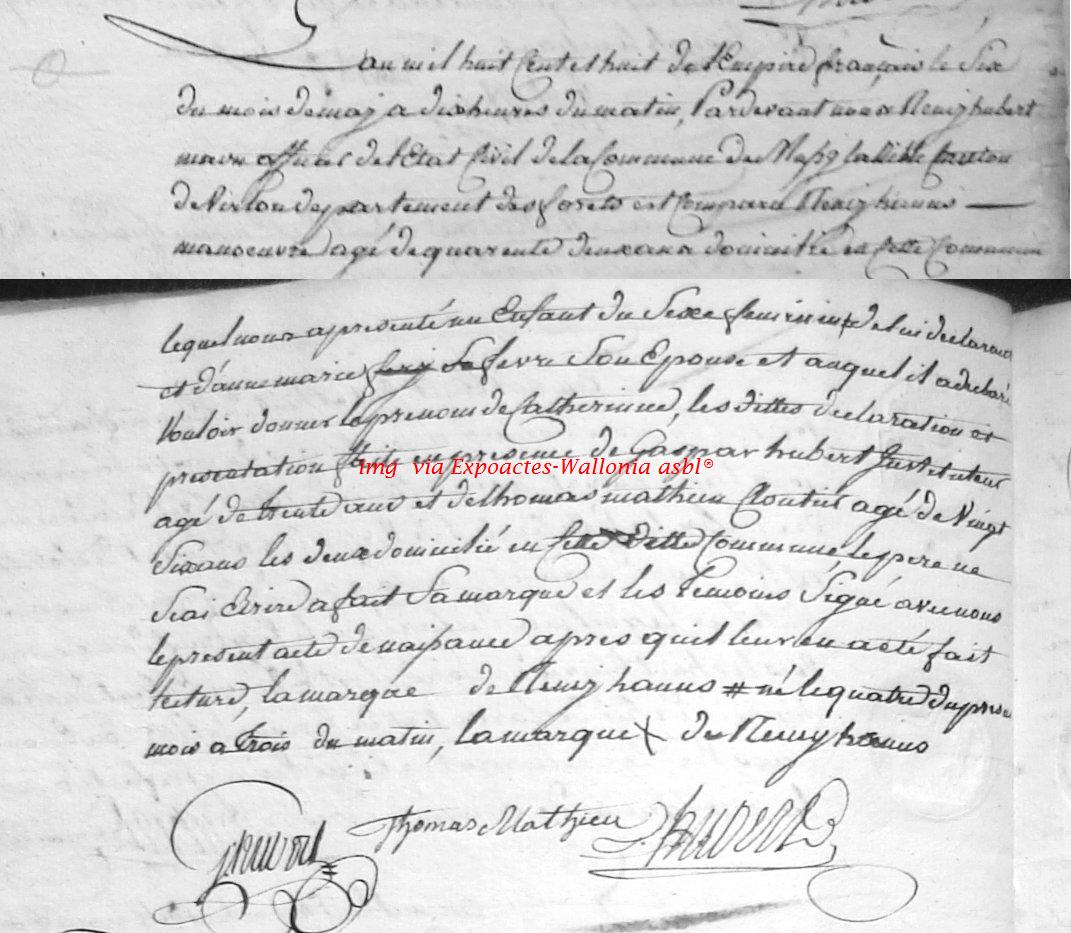 an mil huit Cent et huit de l'Empire français le Six
du mois de may a dix heures du matin, Pardevant nous Remy hubert
maire officier de l'Etat Civil de la Commune de la Ville Canton
de Virton departement des forets est Comparu Remy hanus
manoeuvre agé de quarente deux ans domicilié en Cette Commune
lequel nous a presenté un Enfant du Sexe feminin # de lui declarant
et d'anne marie Lefevre Son Epouse et auquel il a declaré
Vouloir donner le prenom de Catherinne, les dittes declaration et
presentation fait en presence de Gaspar hubert Instituteur
Img via Expoactes-Wallonia asbl®
agé de trente ans et de thomas mathieu Cloutier agé de Vingt
Six ans les deux domicilié en Cette ditte Commune le pere ne
Scai Ecrire a fait Sa marque et les temoins Signé avec nous
le present acte de naissance apres quil leur en a eté fait
lecture, la marque de Remy hanus # né le quatre du present
mois a trois du matin, la marque X de Remy hanus
Ghubert Thomas Mathieu R. hubert